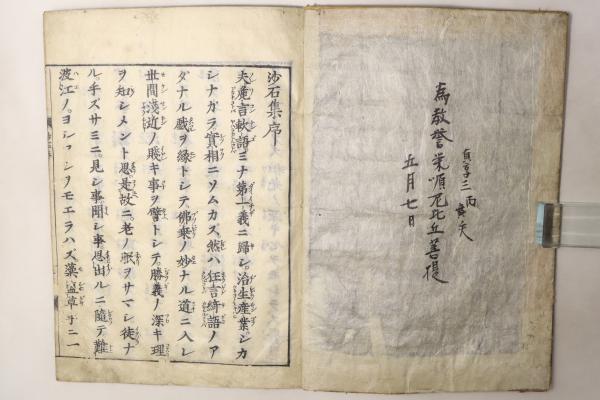 貞享三丙寅天
為教誉栄順尼比丘菩提
五月七日
沙石集序
夫麁言軟語ミナ第一義ニ歸シ。治生産業シカ
シナガラ實相ニソムカズ。然ハ狂言綺語ノア
ダナル戯ヲ縁トシテ。佛乗ノ妙ナル道ニ入レ
世間淺近ノ賤キ事ヲ譬トシテ。勝義ノ深キ理
ヲ知シメント思。是故ニ。老ノ眠ヲサマシ徒ナ
ル手ズサミニ。見シ事聞シ事思出ルニ隨テ難
波江ノ。ヨシアシヲモエラハズ。藻塩草手ニ